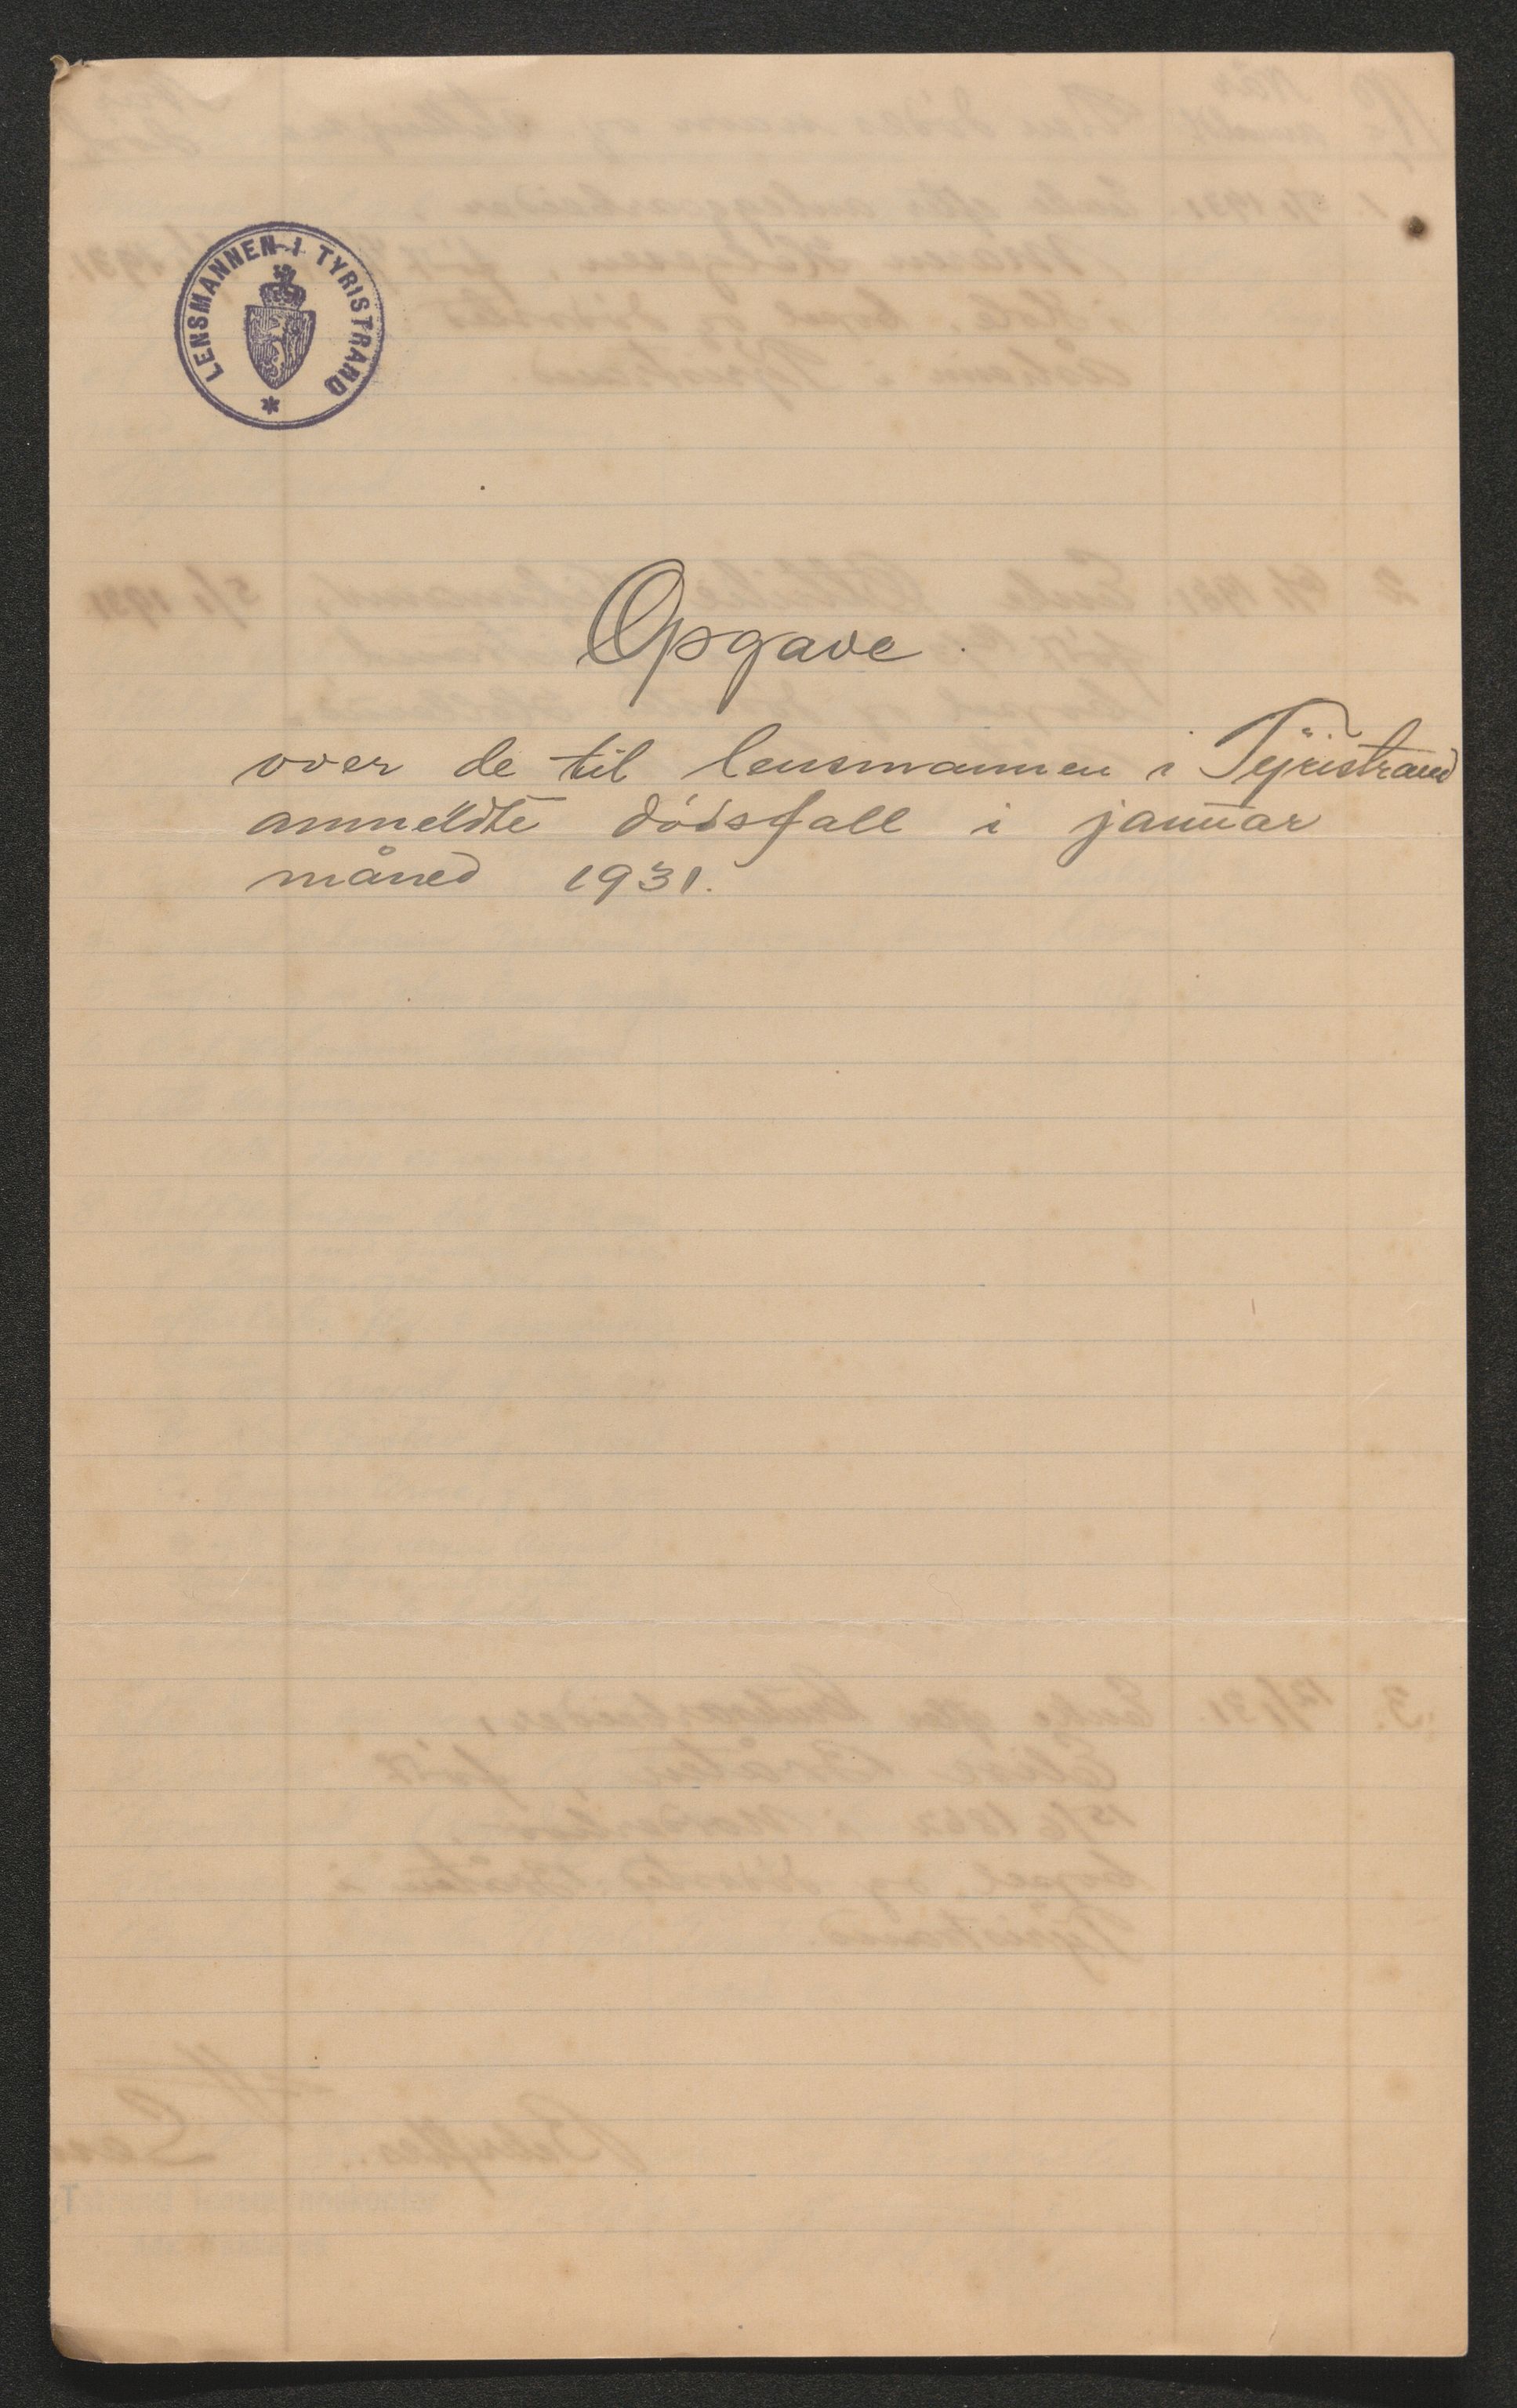 LENSMANNEN I TYRISTRAND
Opgave.
over de til lensmannen i Tyristrand
anmeldte dødsfall i januar
måned 1931.